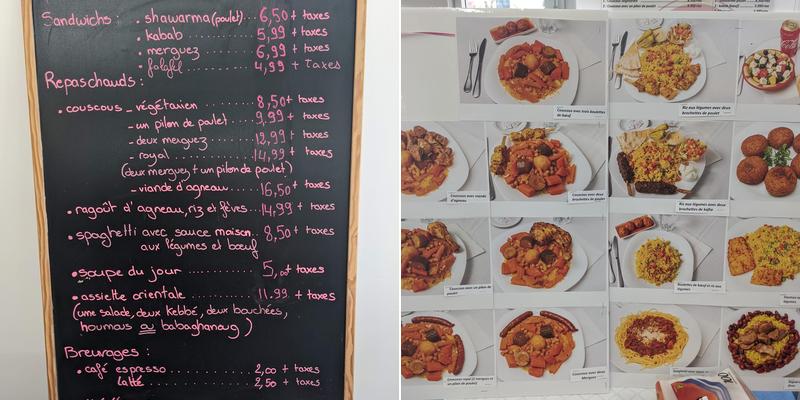 Sandwichs : . shawarma (poulet) ... 6,50 + taxes
. kabab ........ 5,99 + taxes
. merguez ....... 6,99 + taxes
. falafel ........ 4,99 + taxes
Repas chauds :
. couscous - végétarien ....... 8,50 + taxes
- un pilon de poulet .... 9,99 + taxes
- deux merguez ....... 12,99 + taxes
- royal ............ 14,99 + taxes
(deux merguez + un pilon de poulet)
- viande d'agneau ..... 16,50 + taxes
. ragoût d'agneau, riz et fèves .. 14,99 + taxes
. spaghetti avec sauce maison .. 8,50 + taxes
aux légumes et boeuf
. soupe du jour .......... 5,00 + taxes
. assiette orientale ........ 11.99 + taxes
(une salade, deux Kebbé, deux bouchées,
houmous ou babaghanoug)
Breuvages :
. café espresso ............ 2,00 + taxes
latté ................ 2,50 + taxes
Couscous avec trois boulettes
de bœuf
Riz aux légumes avec deux
brochettes de poulet
Couscous avec viande
d'agneau
Couscous avec deux
brochettes de poulet
Riz aux légumes avec deux
brochettes de kafta
Couscous avec un pilon de
poulet
Boulettes de bœuf et riz aux
légumes
Couscous royal (2 merguez et
un pilon de poulet)
Couscous avec deux
Merguez